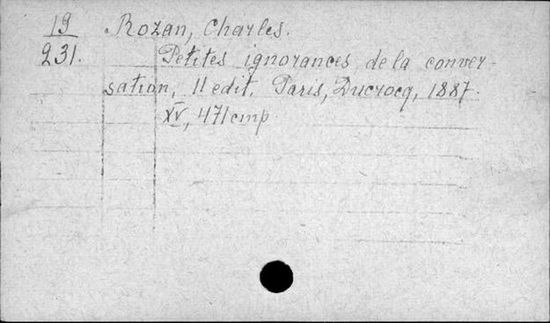 19 Rozan, Charles.
231. Petites ignorances de la conver-
sation, 11 edit. Paris, Ducrocq, 1887.
XV, 471 стр